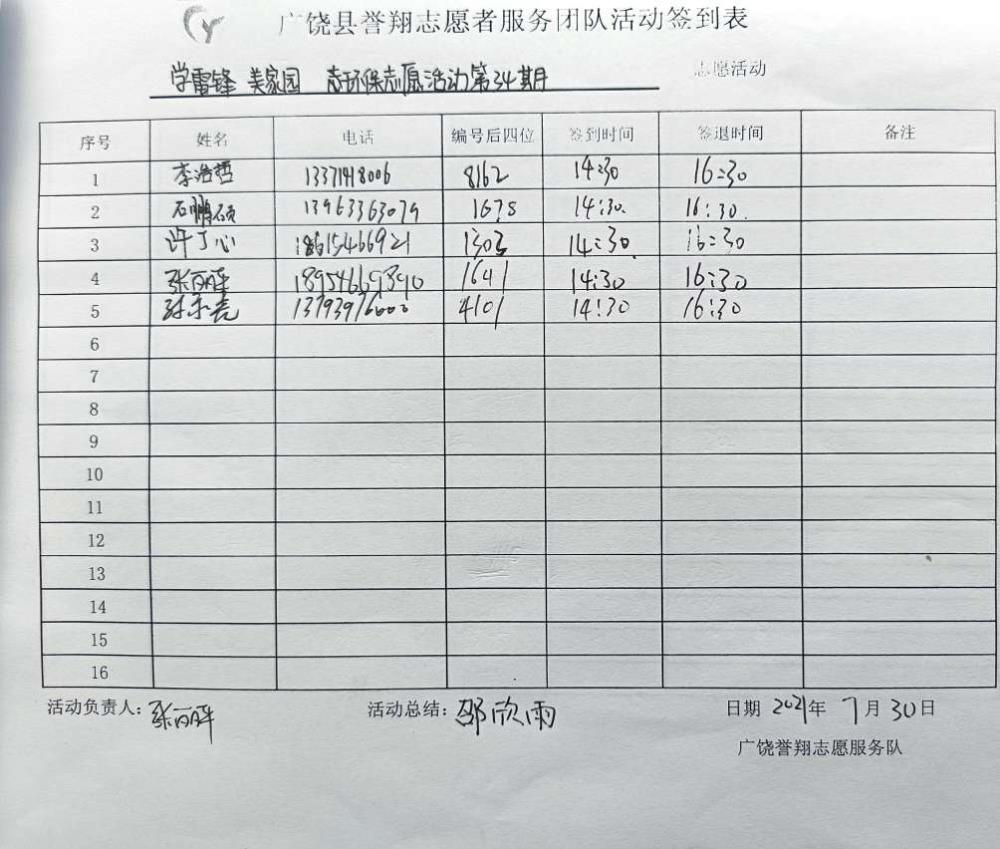 广饶县誉翔志愿者服务团队活动签到表
学雷锋 美家园 志环保志愿活动第34期 志愿活动
序号 姓名 电话 编号后四位 签到时间 签退时间 备注
1 李浩哲 8162 14:30 16:30
2 石鹏硕 13963363079 1678 14:30. 16:30.
3 许丁心 18615466921 1303 14:30 16:30
4 张丽萍 18954669390 1641 14:30 16:30
5 4101 14:30 16:30
6
7
8
9
10
11
12
13
14
15
16
活动负责人:张丽萍 活动总结:邵欣雨 日期 2021年 7月30日
广饶誉翔志愿服务队